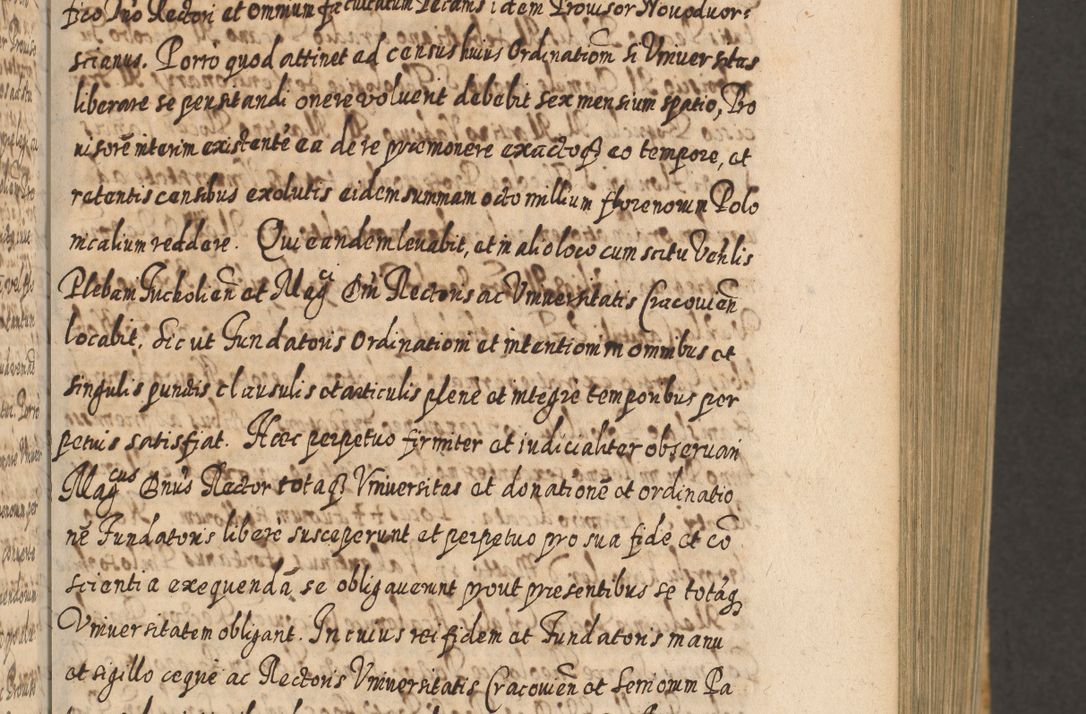 fico Dno Rectori et omnium facultatum Decanis idem Provisor Novoduor-
scianus. Porro quod attinet ad census huius Ordinationē si Vniversitas
liberare se pensitandi onere voluerit debebit sex mensium spatio, Pro
uisorē interim existentē ea de re præmonere exactoq̃ eo tempore, et
retentis censibus exolutis eidem summam octo millium florenorum Polo
nicalium reddere. Qui eandem levabit, et in alio loco cum scitu Vehlis
Plebani Tucholien̄ et Magci Dni Rectoris ac Vniversitatis Cracovien̄
locabit. Sicut Fundatoris Ordinationi et intentioni in omnibus et
singulis punctis clausulis et articulis plene et integre temporibus per
petuis satisfiat. Hæc perpetuo firmiter et iudicialiter observari
Magcus Dnus Rector totaq̃ Vniversitas et donationē et ordinatio
nē Fundatoris liberè susceperunt et perpetuo pro sua fide et cō
scientia exequendā se obligaverunt prout præsentibus se totāq̃
Vniversitatem obligant. In cuius rei fidem et Fundatoris manu
et sigillo ceque ac Rectoris Vniversitatis Cracovien̄ et Seniorum Pa